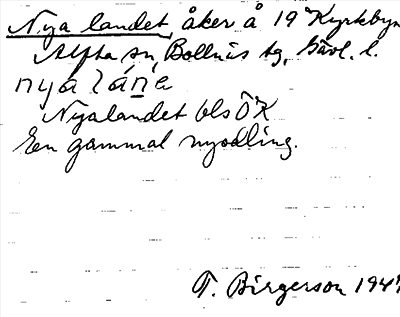 Nya landet åker å 19 Kyrkbyn
Alfta sn, Bollnäs tg, Gävl. l.
nya lánė
Nyalandet bls ÖK
En gammal nyodling.
T. Birgerson 194